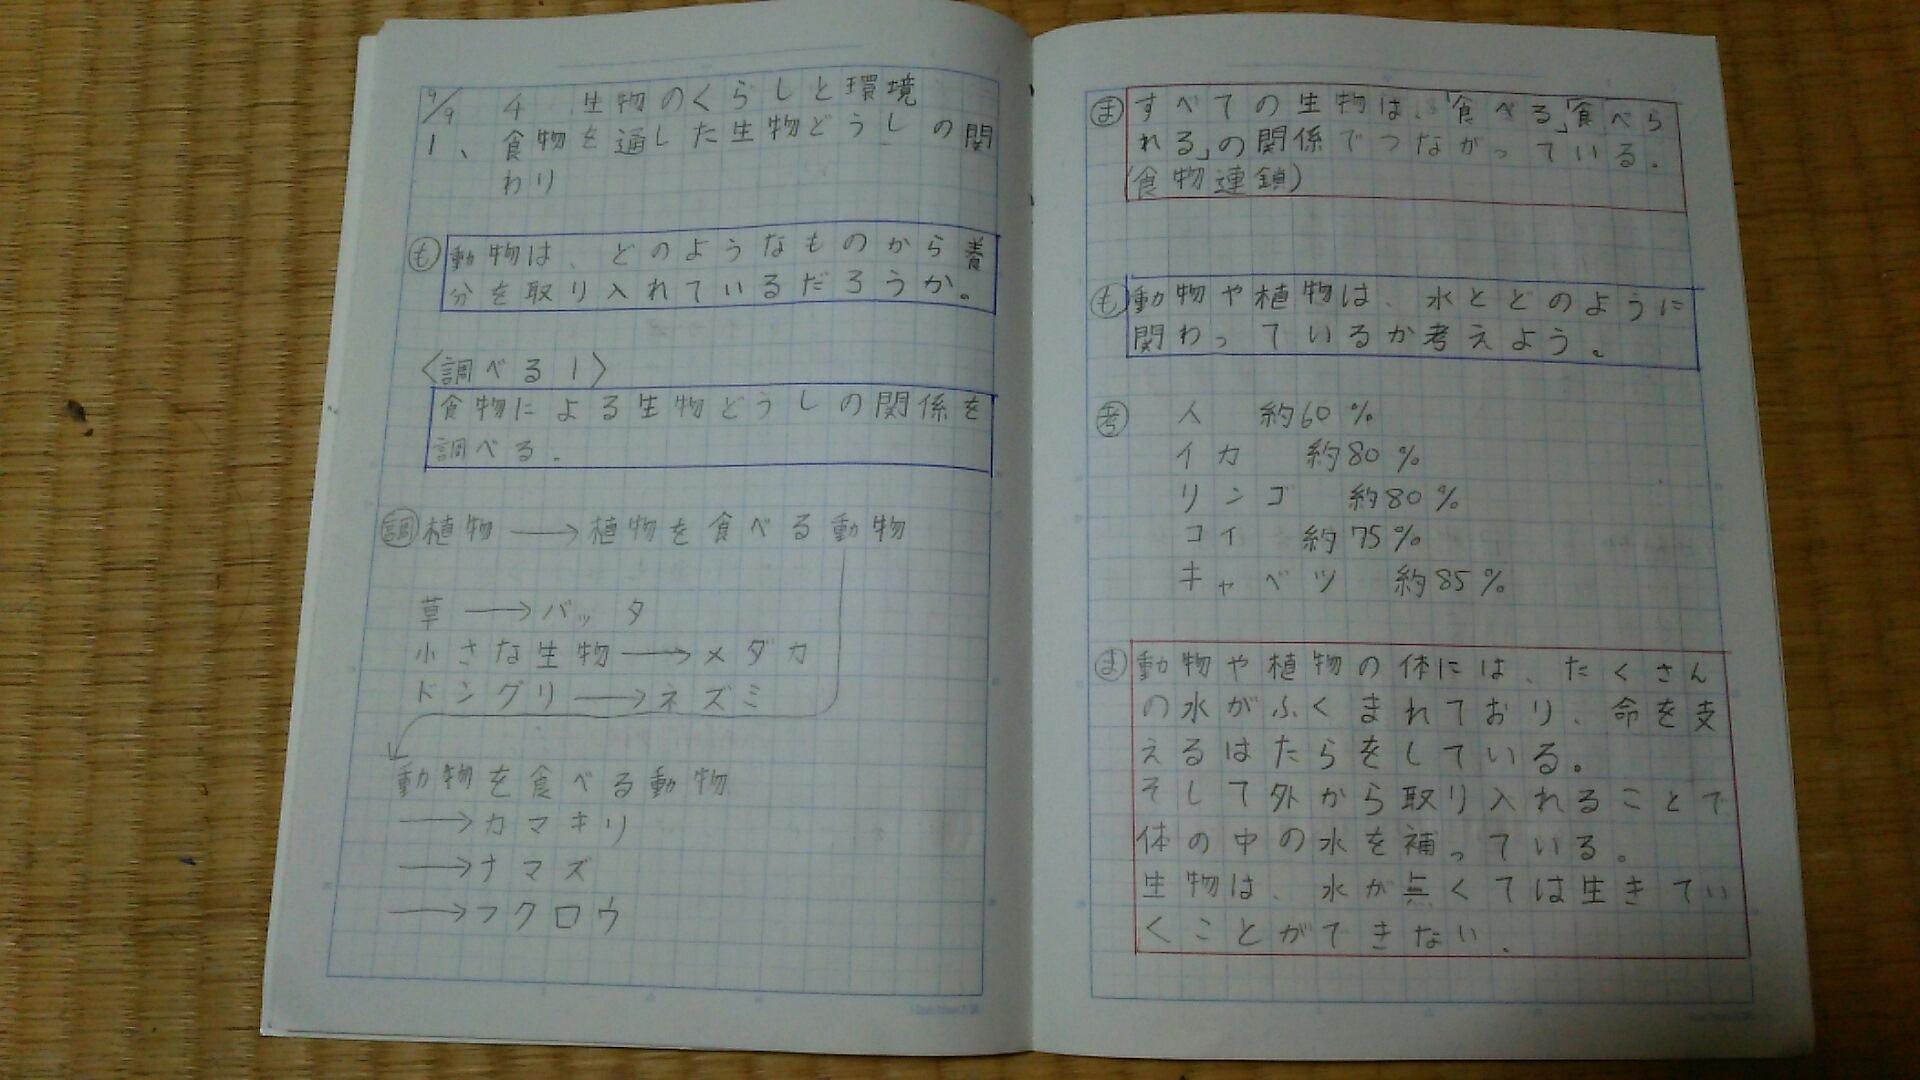 9/9 4 生物のくらしと環境
1、食物を通した生物どうしの関
わり
も 動物は、どのようなものから養
分を取り入れているだろうか。
〈調べる1〉
食物による生物どうしの関係を
調べる。
調 植物→植物を食べる動物
草→バッタ
小さな生物→メダカ
ドングリ→ネズミ
動物を食べる動物
→カマキリ
→ナマズ
→フクロウ
ま すべての生物は、「食べる」「食べら
れる」の関係でつながっている。
(食物連鎖)
も 動物や植物は、水とどのように
関わっているか考えよう。
考 人 約60%
イカ 約80%
リンゴ 約80%
コイ 約75%
キャベツ 約85%
ま 動物や植物の体には、たくさん
の水がふくまれており、命を支
えるはたらをしている。
そして外から取り入れることで
体の中の水を補っている。
生物は、水が無くては生きてい
くことができない。